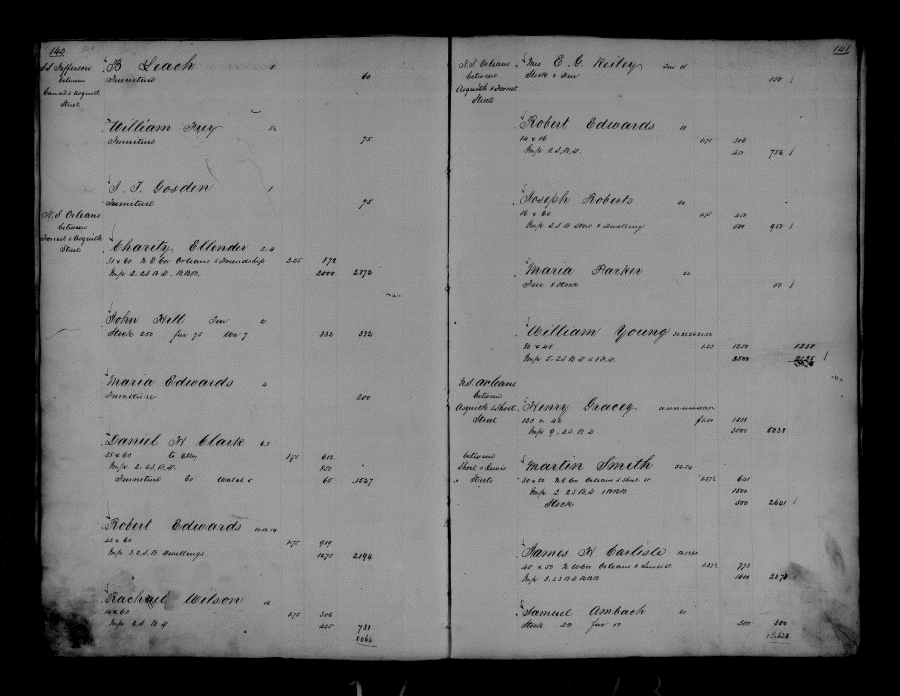 140
S.S Jefferson
between
Canal & Asquith
Street
B Leach 5
Furniture 60
William Frey
Furniture 75
S. T. Gosden 1
Furniture 75
N.S Orleans
between
Forrest & Asquith
Street
Charity Ellender 2.4
31 x 60 N E Cor Orleans & Friendship 2.25 872
Imp 2. 2 S B D. BBB. 2000 2872
John Hill Fur 2
Stock 250 fur 75 Wa 7 332 332
Maria Edwards 4
Furniture 200
Daniel H Clark 6.8
25 x 60 To Alley 1.75 612
Imp 2. 2 S, B, D. 850
Furniture 60 Watch 5 65 1527
Robert Edwards 10.12.14
42 x 60 1.75 919
Imp 3. 2. S. B Dwellings 1275 2194
Rachael Wilson 16
14 x 60 1.75 306
Imp 2. S. B D 425 731
8066
141
N.S Orleans
between
Asquith & Forrest
Streets
Mrs E. G. Keiley
Stock & Fur 150
Robert Edwards 18
14 x 16 1.75 306
Imp 2. S, B, D. 450 756
Joseph Roberts 20
16 x 60
Imp 2 S B Store & Dwelling 500 950
Maria Parker 20
Fur & Stock 50
William Young
80 x 45 1250 1250
Imp 5. 2 S B D
N.S. Orleans
between
Asquith & Short
Street
Henry Gracey
Imp 9. 2 S B D 5038
between
Short & Lewis
Streets
Martin Smith 52.54
30 x 50 N E Cor Orleans & Short St 641
Imp 2 2 S B, D BBB 1500
Stock 500 2641
James H Carlisle
45 x 50 N W Cor Orleans & Lewis St 773
Imp 2. 2 S B D BBB 1600 2373
Samuel Ambach
Stock 250 fur 50 300 300